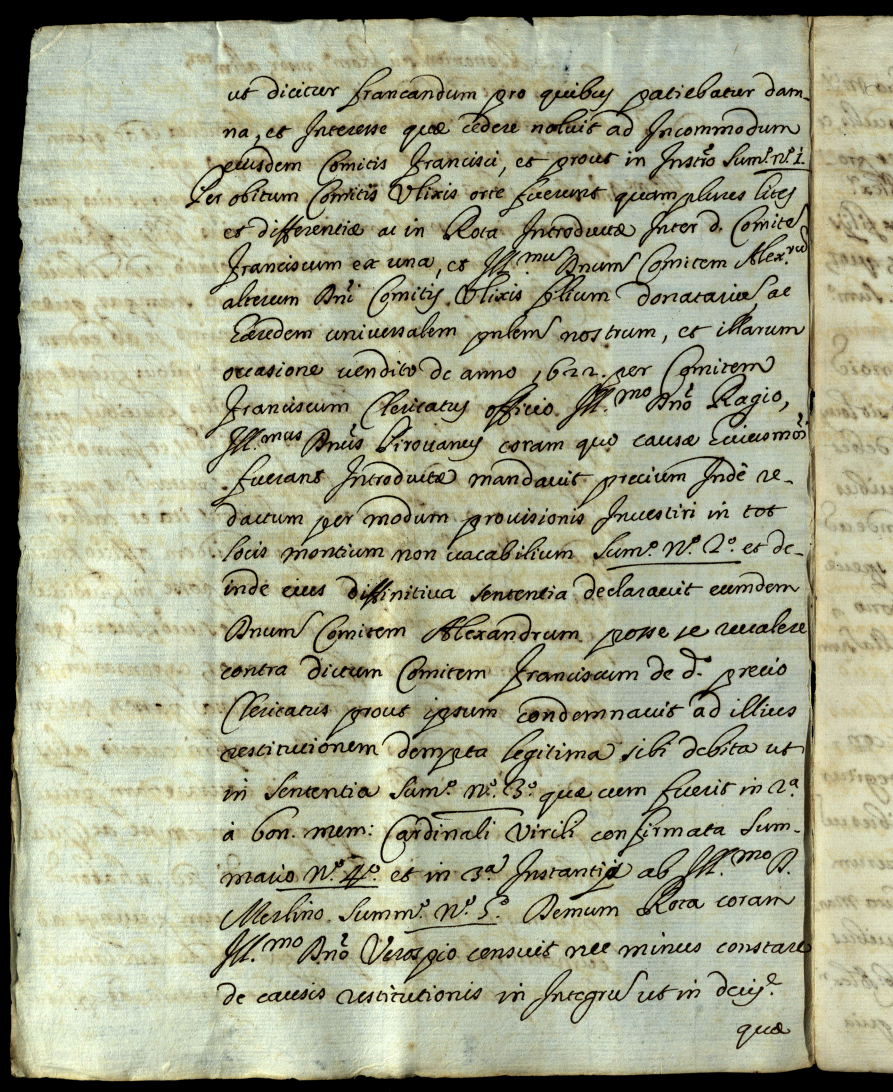 ut dicitur francandum pro quibus patiebatur dam-
na, et Interesse quæ cedere noluit ad Incommodum
eiusdem Comitis Francisci, et prout in Instrō Sum.º nº. 1.
Per obitum Comitis Ulixis orte fuerunt quamplures lites
et differentiæ ac in Rota Introductæ Inter d. Comitē
Franciscum ex una, et Ill.mū Dnum Comitem Alex.rum
alterum Dnī Comitis Ulixis filium donatariū ac
Hæredem universalem pntem nostrum, et illarum
occasione vendito de anno 1622. per Comitem
Franciscum Clericatus officio Ill.mo Dnō Ragio,
Ill.mus Dnūs Pirouanus coram quo causæ huiusmōi
fuerant Introductæ mandavit precium Inde re-
dactum per modum provisionis Investiri in tot
locis montium non vacabilium Sum.º Nº. 2º. et de-
inde eius diffinitiva sententia declaravit eumdem
Dnum Comitem Alexandrum posse se revalere
contra dictum Comitem Franciscum de d.º precio
Clericatus prout ipsum condemnavit ad illius
restitutionem dempta legitima sibi debita ut
in Sententia Sum.º Nº. 3º quæ cum fuerit in 2ª.
à bon. mem: Cardinali Virili confirmata Sum-
mario Nº. 4º. et in 3ª Instantia ab Ill.mo D.
Merlino Summ.º Nº. 5º Demum Rota coram
Ill.mo Dnō Verospio censuit nec minus constare
de causis restitutionis in Integrū ut in decis.e
quæ